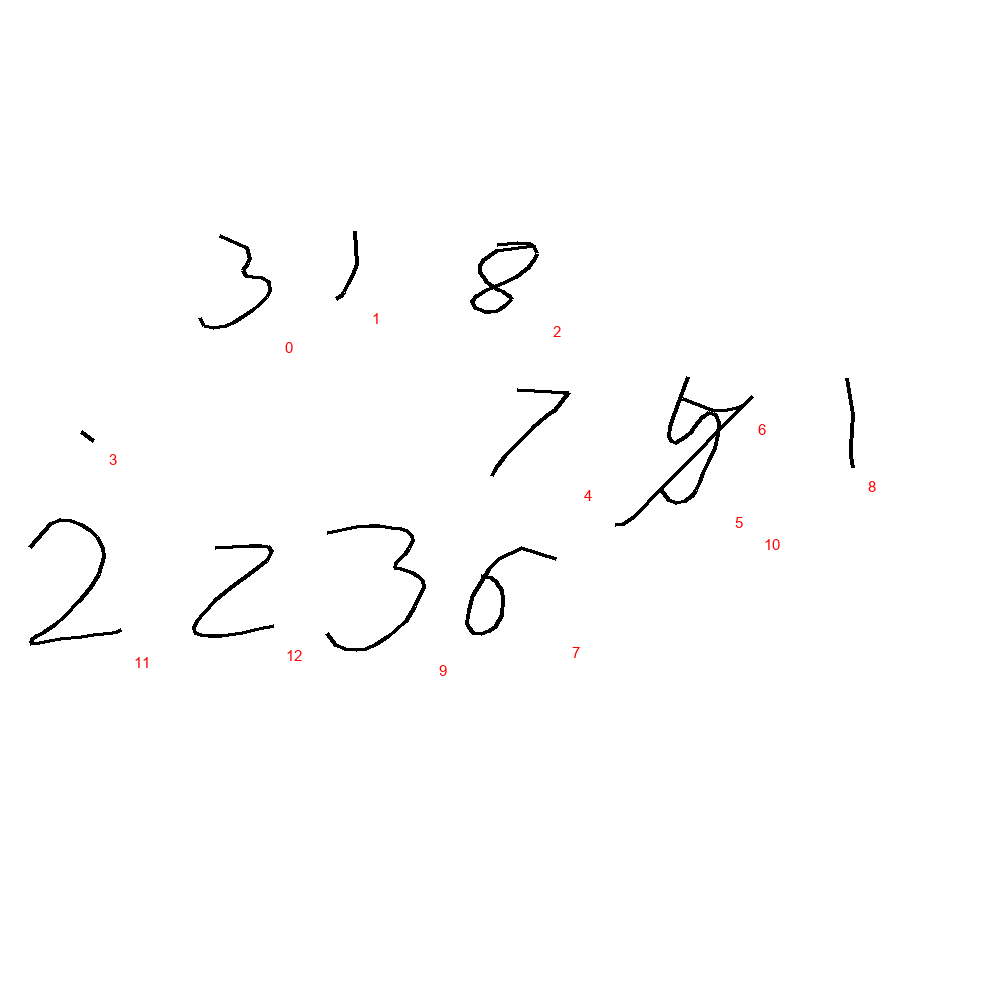 3 1 8
0 1 2
7 1
3 6
4 8
5
10
2 2 3 6
11 12 9 7